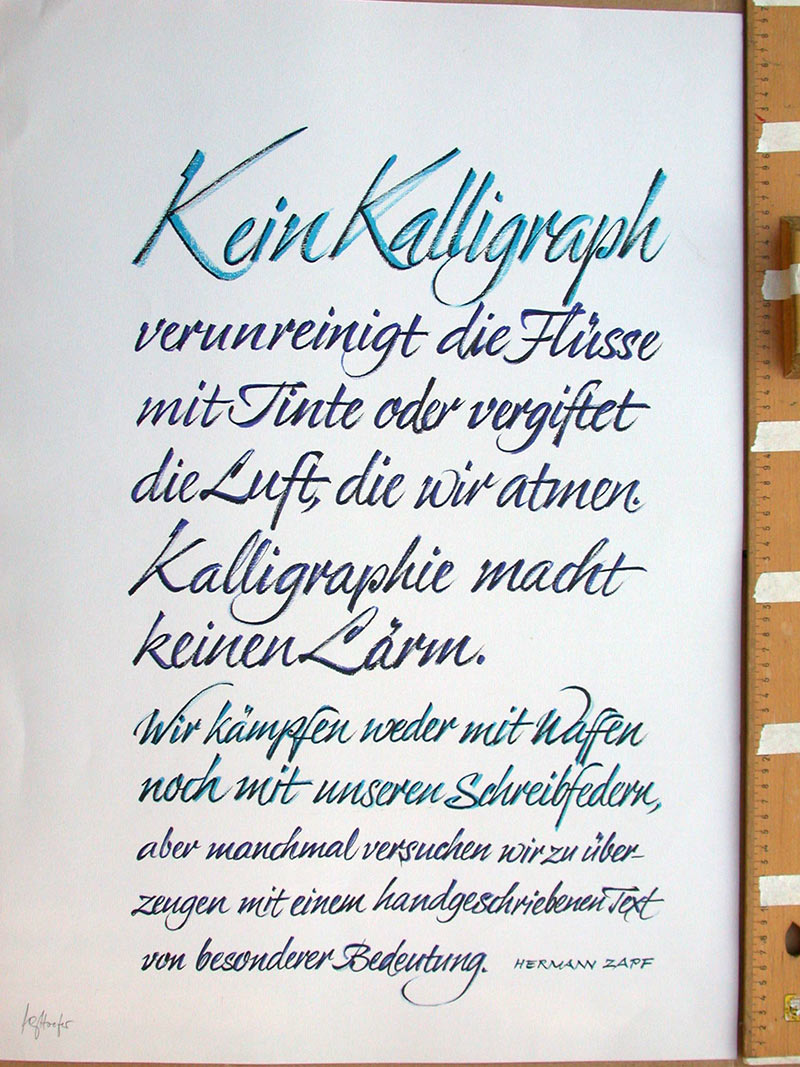 Kein Kalligraph
verunreinigt die Flüsse
mit Tinte oder vergiftet
die Luft, die wir atmen.
Kalligraphie macht
keinen Lärm.
Wir kämpfen weder mit Waffen
noch mit unseren Schreibfedern,
aber manchmal versuchen wir zu über-
zeugen mit einem handgeschriebenen Text
von besonderer Bedeutung. HERMANN ZAPF